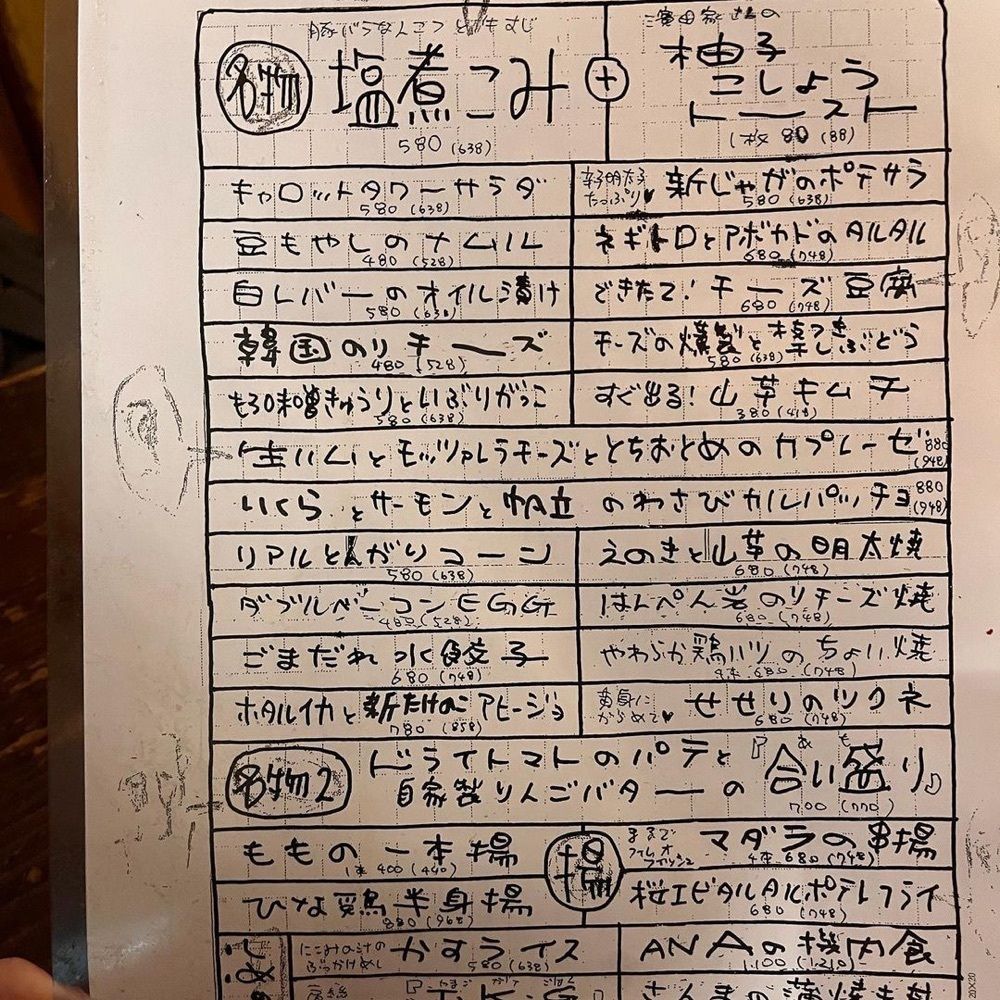 豚バラなんこつ ともすじ
名物 塩煮こみ
580 (638)
+
濱田家さんの
柚子
こしょう
トースト
1枚 80 (88)
キャロットタワーサラダ
580 (638)
辛子明太子
たっぷり♥
新じゃがのポテサラ
580 (638)
豆もやしのナムル
480 (528)
ネギトロとアボカドのタルタル
680 (748)
白レバーのオイル漬け
580 (638)
できたて!チーズ豆腐
680 (748)
韓国のりチーズ
480 (528)
チーズの燻製と干しぶどう
580 (638)
もろ味噌きゅうりといぶりがっこ
580 (638)
すぐ出る!山芋キムチ
380 (418)
生ハムとモッツァレラチーズととちおとめのカプレーゼ 880
(948)
いくらとサーモンと帆立のわさびカルパッチョ 880
(948)
リアルとんがりコーン
580 (638)
えのきと山芋の明太焼
680 (748)
ダブルベーコンEGG
480 (528)
はんぺん岩のりチーズ焼
680 (748)
ごまだれ水餃子
680 (748)
やわらか鶏ハツのちょい焼
680 (748)
ホタルイカと新たけのこアヒージョ
780 (858)
黄身に
からめて♥
せせりのツクネ
680 (748)
名物2
ドライトマトのパテと
自家製りんごバターの
『合い盛り』
あ も
700 (770)
ももの一本揚
1本 400 (440)
揚
まるで
フィレオ
フィッシュ
マダラの串揚
4本 680 (748)
ひな鶏半身揚
880 (968)
桜エビタルタルポテトフライ
680 (748)
にこみの汁の
ぶっかけめし
かすライス
580 (638)
ANAの機内食
1100 (1210)
『T.K.G』
さんまの蒲焼き丼
20×20